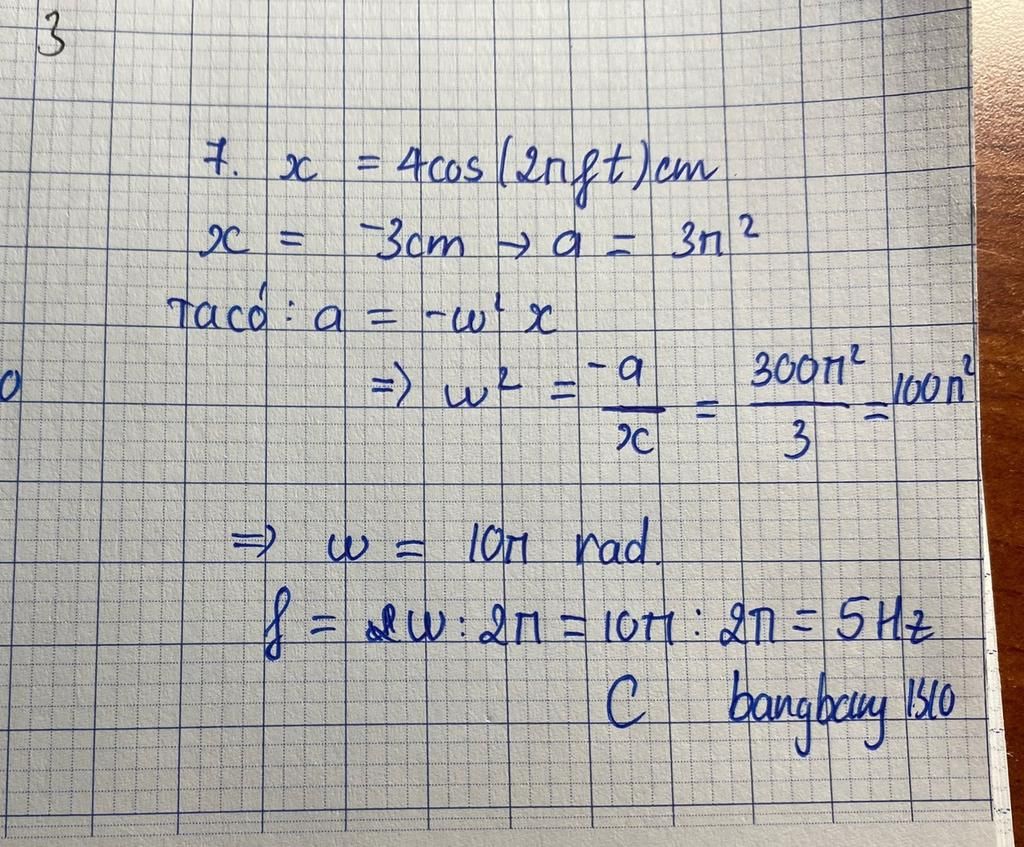 3
7. x = 4cos(2πft)cm
x = -3cm → a = 3π²
Ta có: a = -ω² x
0
=> ω² = -a/x = 300π²/3 = 100π²
=> ω = 10π rad.
f = ω : 2π = 10π : 2π = 5Hz
C bangbany 1510